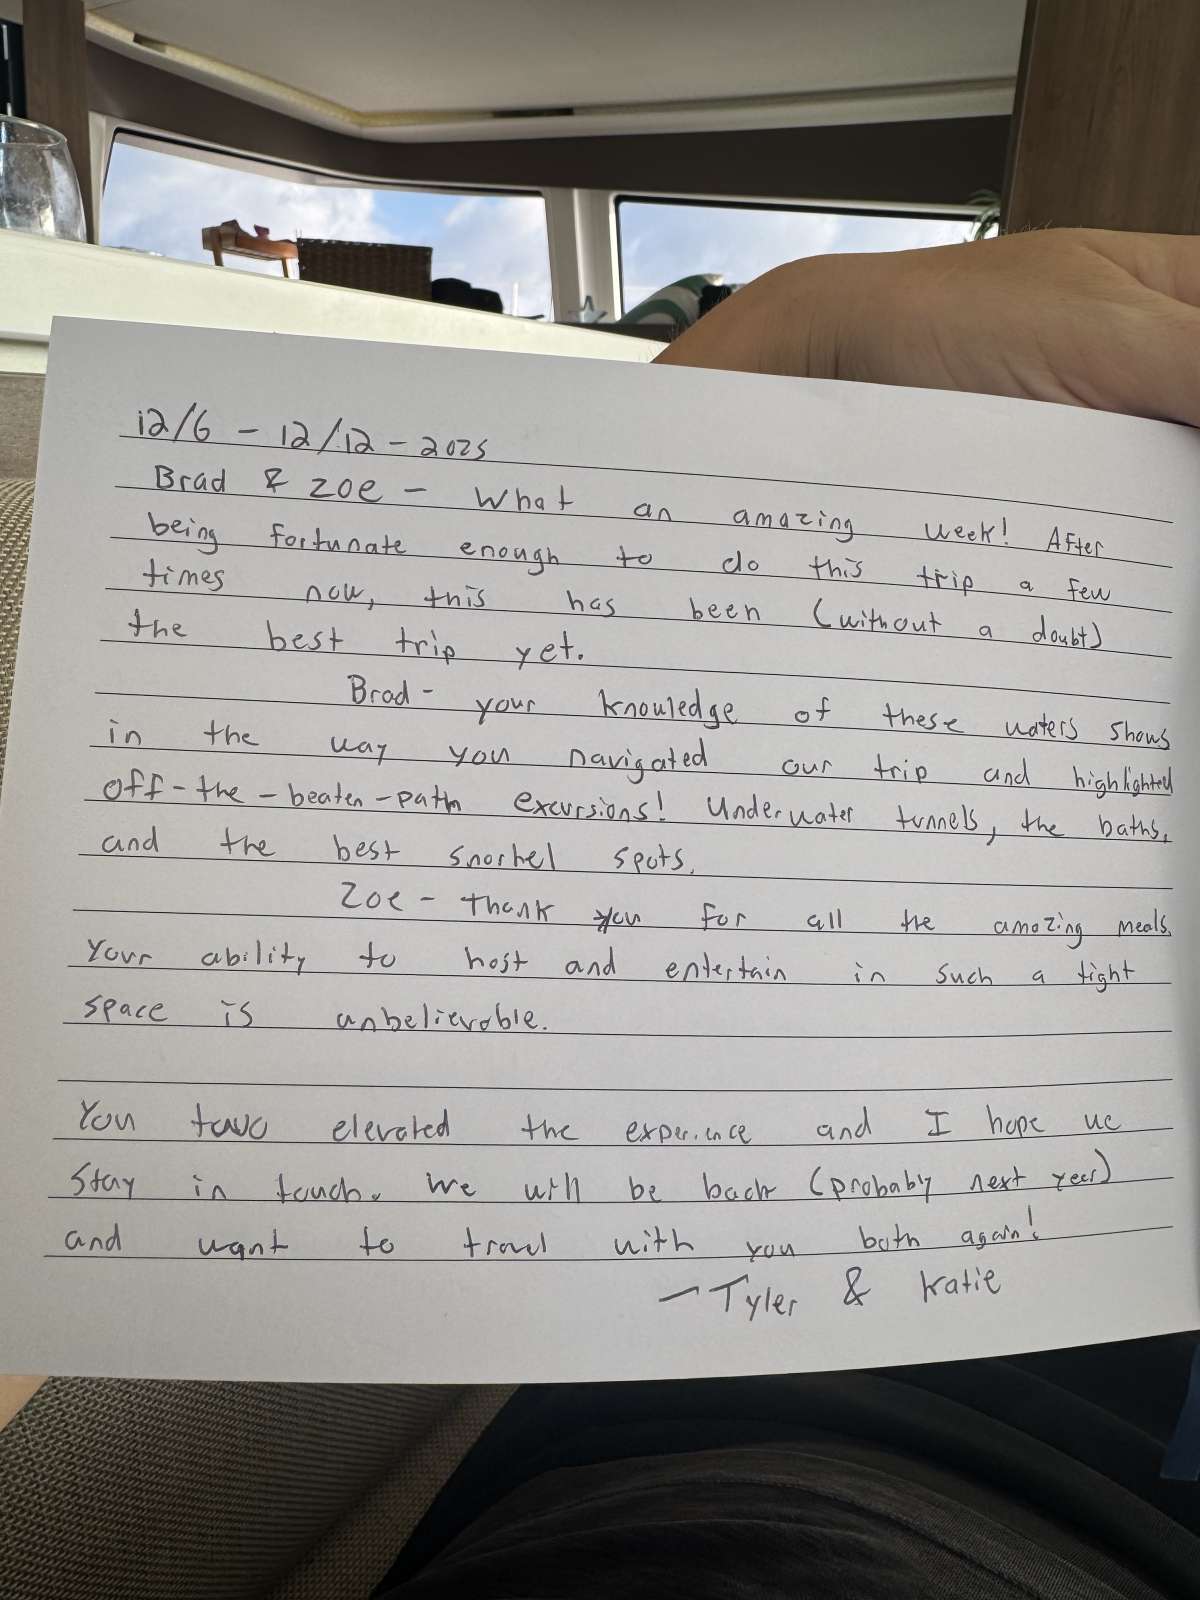 12/6 - 12/12 - 2025
Brad & Zoe - What an amazing week! After
being fortunate enough to do this trip a few
times now, this has been (without a doubt)
the best trip yet.
Brad - your knowledge of these waters shows
in the way you navigated our trip and highlighted
off-the-beaten-path excursions! Underwater tunnels, the baths,
and the best snorkel spots.
Zoe - thank you for all the amazing meals.
Your ability to host and entertain in such a tight
space is unbelievable.
You two elevated the experience and I hope we
stay in touch. We will be back (probably next year)
and want to travel with you both again!
- Tyler & Katie